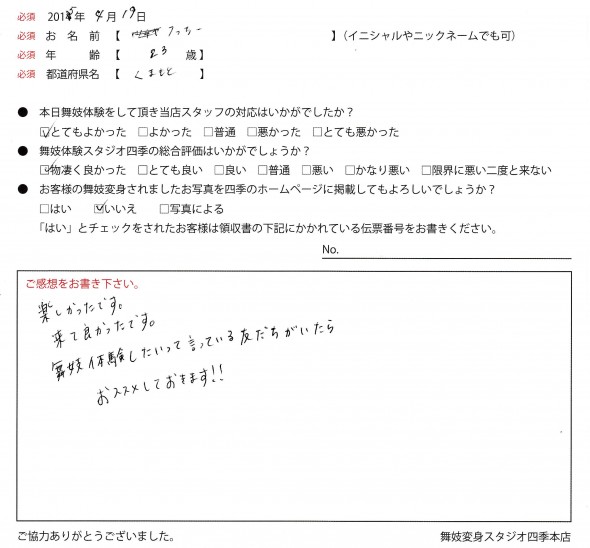 必須 2015年 4月 19日
必須 お 名 前 【 】(イニシャルやニックネームでも可)
必須 年 齢 【 23 歳】
必須 都道府県名 【 くまもと 】
● 本日舞妓体験をして頂き当店スタッフの対応はいかがでしたか?
☑とてもよかった □よかった □普通 □悪かった □とても悪かった
● 舞妓体験スタジオ四季の総合評価はいかがでしょうか?
☑物凄く良かった □とても良い □良い □普通 □悪い □かなり悪い □限界に悪い二度と来ない
● お客様の舞妓変身されましたお写真を四季のホームページに掲載してもよろしいでしょうか?
□はい ☑いいえ □写真による
「はい」とチェックをされたお客様は領収書の下記にかかれている伝票番号をお書きください。
No.
ご感想をお書き下さい。
楽しかったです。
来て良かったです。
舞妓体験したいって言っている友だちがいたら
おススメしておきます!!
ご協力ありがとうございました。 舞妓変身スタジオ四季本店